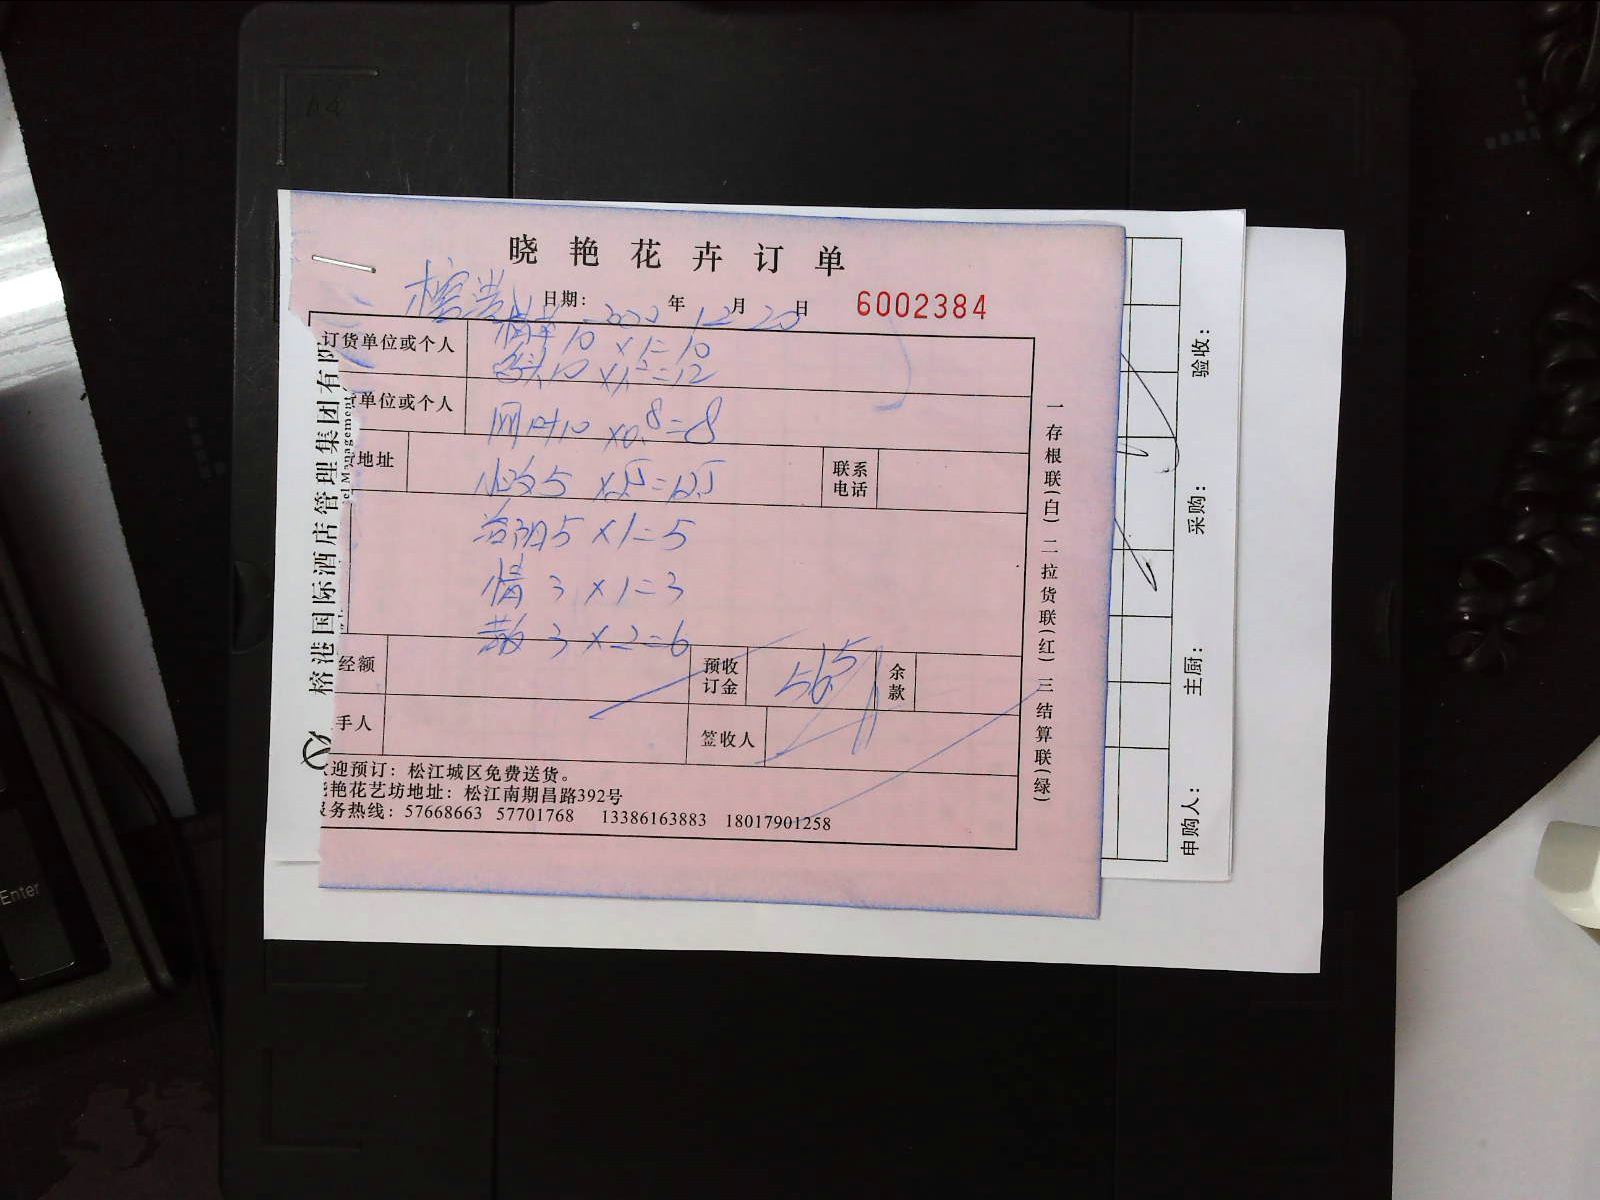 晓艳花卉订单
榕港
日期: 2022年12月20日
6002384
订货单位或个人
10 ×1=10
10 ×1.2=12
单位或个人
网叶10 ×0.8=8
地址
联系电话
小玫5 ×2.5=12.5
5 ×1=5
情 3 ×1=3
散 3 ×2=6
经额
预收订金
56.5
余款
手人
签收人
迎预订：松江城区免费送货。
艳花艺坊地址：松江南期昌路392号
服务热线：57668663 57701768 13386163883 18017901258
一存根联(白) 二拉货联(红) 三结算联(绿)
榕港国际酒店管理集团有限
el Management
验收：
采购：
主厨：
申购人：
Enter